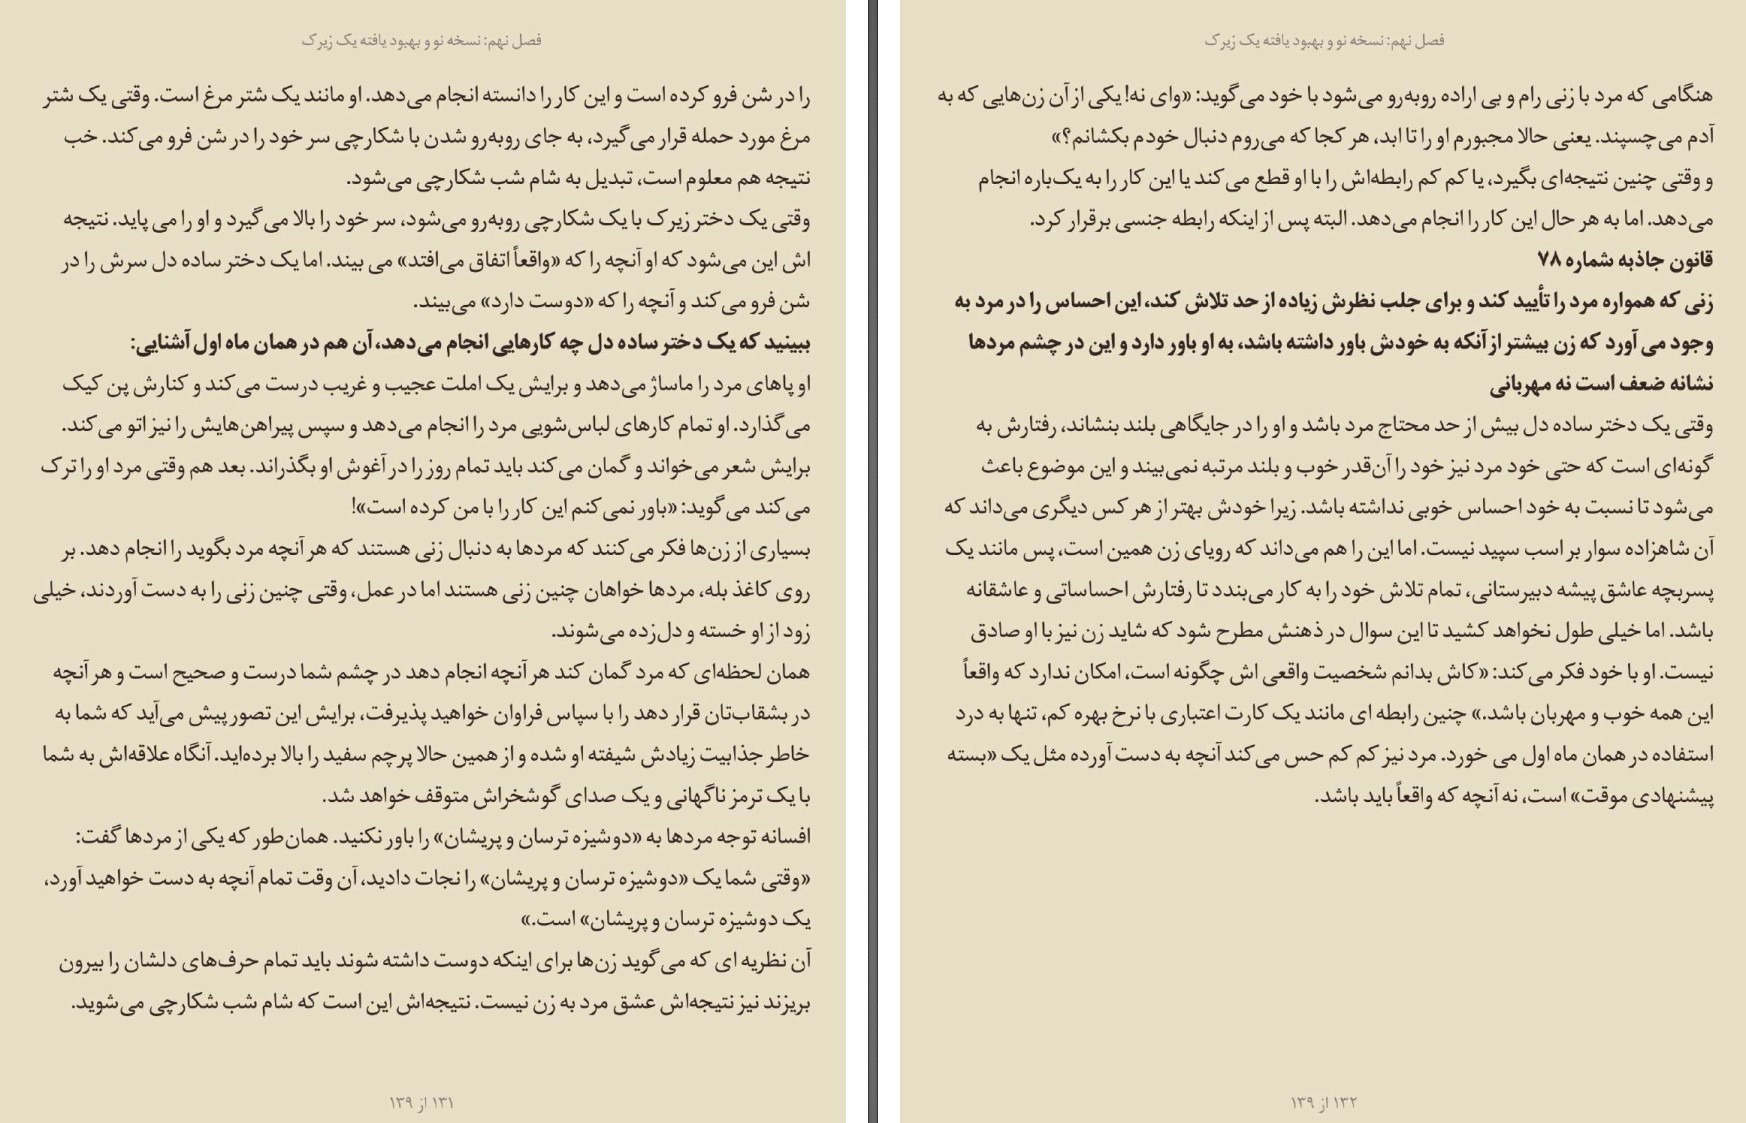 فصل نهم: نسخه نو و بهبود یافته یک زیرک
را در شن فرو کرده است و این کار را دانسته انجام می‌دهد. او مانند یک شتر مرغ است. وقتی یک شتر
مرغ مورد حمله قرار می‌گیرد، به جای روبه‌رو شدن با شکارچی سر خود را در شن فرو می‌کند. خب
نتیجه هم معلوم است، تبدیل به شام شب شکارچی می‌شود.
وقتی یک دختر زیرک با یک شکارچی روبه‌رو می‌شود، سر خود را بالا می‌گیرد و او را می پاید. نتیجه
اش این می‌شود که او آنچه را که «واقعاً اتفاق می‌افتد» می بیند. اما یک دختر ساده دل سرش را در
شن فرو می‌کند و آنچه را که «دوست دارد» می‌بیند.
ببینید که یک دختر ساده دل چه کارهایی انجام می‌دهد، آن هم در همان ماه اول آشنایی:
او پاهای مرد را ماساژ می‌دهد و برایش یک املت عجیب و غریب درست می‌کند و کنارش پن کیک
می‌گذارد. او تمام کارهای لباس‌شویی مرد را انجام می‌دهد و سپس پیراهن‌هایش را نیز اتو می‌کند.
برایش شعر می‌خواند و گمان می‌کند باید تمام روز را در آغوش او بگذراند. بعد هم وقتی مرد او را ترک
می‌کند می‌گوید: «باور نمی‌کنم این کار را با من کرده است»!
بسیاری از زن‌ها فکر می‌کنند که مردها به دنبال زنی هستند که هر آنچه مرد بگوید را انجام دهد. بر
روی کاغذ بله، مردها خواهان چنین زنی هستند اما در عمل، وقتی چنین زنی را به دست آوردند، خیلی
زود از او خسته و دل‌زده می‌شوند.
همان لحظه‌ای که مرد گمان کند هر آنچه انجام دهد در چشم شما درست و صحیح است و هر آنچه
در بشقاب‌تان قرار دهد را با سپاس فراوان خواهید پذیرفت، برایش این تصور پیش می‌آید که شما به
خاطر جذابیت زیادش شیفته او شده و از همین حالا پرچم سفید را بالا برده‌اید. آنگاه علاقه‌اش به شما
با یک ترمز ناگهانی و یک صدای گوشخراش متوقف خواهد شد.
افسانه توجه مردها به «دوشیزه ترسان و پریشان» را باور نکنید. همان‌طور که یکی از مردها گفت:
«وقتی شما یک «دوشیزه ترسان و پریشان» را نجات دادید، آن وقت تمام آنچه به دست خواهید آورد،
یک دوشیزه ترسان و پریشان» است.»
آن نظریه ای که می‌گوید زن‌ها برای اینکه دوست داشته شوند باید تمام حرف‌های دلشان را بیرون
بریزند نیز نتیجه‌اش عشق مرد به زن نیست. نتیجه‌اش این است که شام شب شکارچی می‌شوید.
۱۳۱ از ۱۳۹
فصل نهم: نسخه نو و بهبود یافته یک زیرک
هنگامی که مرد با زنی رام و بی اراده روبه‌رو می‌شود با خود می‌گوید: «وای نه! یکی از آن زن‌هایی که به
آدم می‌چسپند. یعنی حالا مجبورم او را تا ابد، هر کجا که می‌روم دنبال خودم بکشانم؟»
و وقتی چنین نتیجه‌ای بگیرد، یا کم کم رابطه‌اش را با او قطع می‌کند یا این کار را به یک‌باره انجام
می‌دهد. اما به هر حال این کار را انجام می‌دهد. البته پس از اینکه رابطه جنسی برقرار کرد.
قانون جاذبه شماره ۷۸
زنی که همواره مرد را تأیید کند و برای جلب نظرش زیاده از حد تلاش کند، این احساس را در مرد به
وجود می آورد که زن بیشتر از آنکه به خودش باور داشته باشد، به او باور دارد و این در چشم مردها
نشانه ضعف است نه مهربانی
وقتی یک دختر ساده دل بیش از حد محتاج مرد باشد و او را در جایگاهی بلند بنشاند، رفتارش به
گونه‌ای است که حتی خود مرد نیز خود را آن‌قدر خوب و بلند مرتبه نمی‌بیند و این موضوع باعث
می‌شود تا نسبت به خود احساس خوبی نداشته باشد. زیرا خودش بهتر از هر کس دیگری می‌داند که
آن شاهزاده سوار بر اسب سپید نیست. اما این را هم می‌داند که رویای زن همین است، پس مانند یک
پسربچه عاشق پیشه دبیرستانی، تمام تلاش خود را به کار می‌بندد تا رفتارش احساساتی و عاشقانه
باشد. اما خیلی طول نخواهد کشید تا این سوال در ذهنش مطرح شود که شاید زن نیز با او صادق
نیست. او با خود فکر می‌کند: «کاش بدانم شخصیت واقعی اش چگونه است، امکان ندارد که واقعاً
این همه خوب و مهربان باشد.» چنین رابطه ای مانند یک کارت اعتباری با نرخ بهره کم، تنها به درد
استفاده در همان ماه اول می خورد. مرد نیز کم کم حس می‌کند آنچه به دست آورده مثل یک «بسته
پیشنهادی موقت» است، نه آنچه که واقعاً باید باشد.
۱۳۲ از ۱۳۹